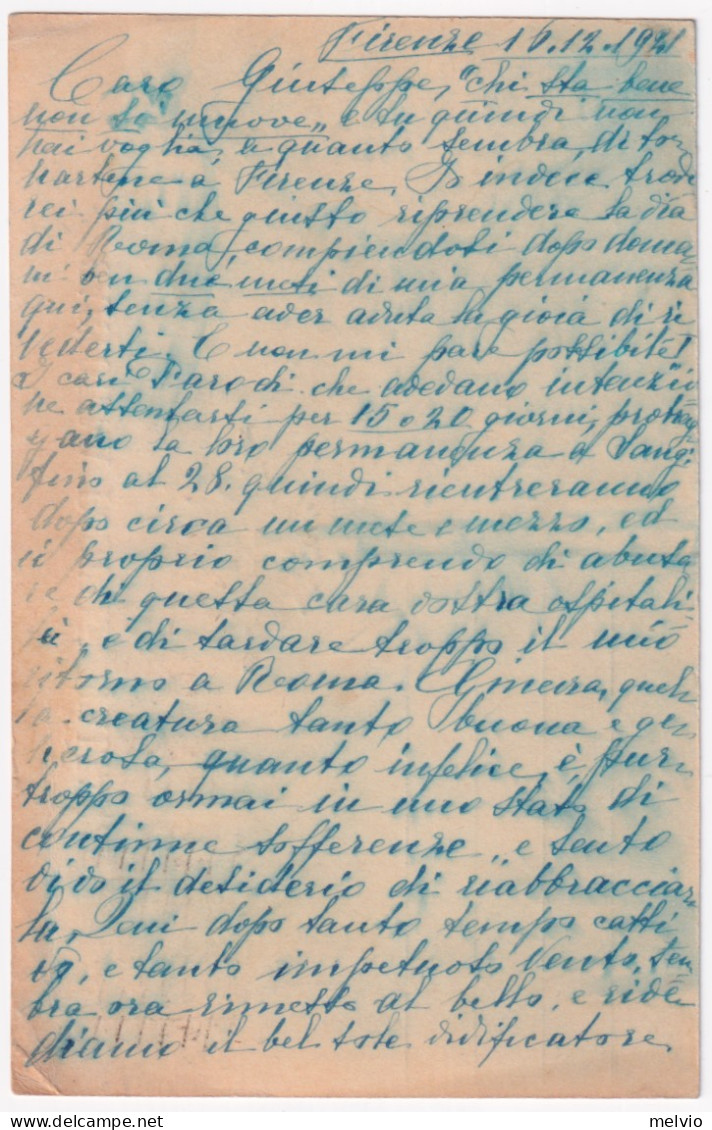 Firenze 16.12.1941
Caro Giuseppe, "chi sta bene
non si muove" e tu quindi non
hai voglia, a quanto sembra, di tor
nartene a Firenze. Io invece trove
rei più che giusto riprendere la via
di Roma, compiendosi dopo doma
ni ben due mesi di mia permanenza
qui, senza aver avuta la gioia di ri
vederti. E non mi pare possibile!
I cari che avevano intenzio
ne assentarsi per 15 o 20 giorni, protrag
gono la loro permanenza a Sangi.
fino al 28. quindi rientreranno
dopo circa un mese e mezzo, ed
io proprio comprendo di abusa
re di questa cara vostra ospitali
tà, e di tardare troppo il mio
ritorno a Roma. Ginevra, quel
la creatura tanto buona e ge
nerosa, quanto infelice, è pur
troppo ormai in uno stato di
continue sofferenze, e sento
vivo il desiderio di riabbracciar
la. Qui dopo tanto tempo catti
vo, e tanto impetuoso vento, sem
bra ora rimesso al bello, e rive
diamo il bel sole vivificatore.
melvio